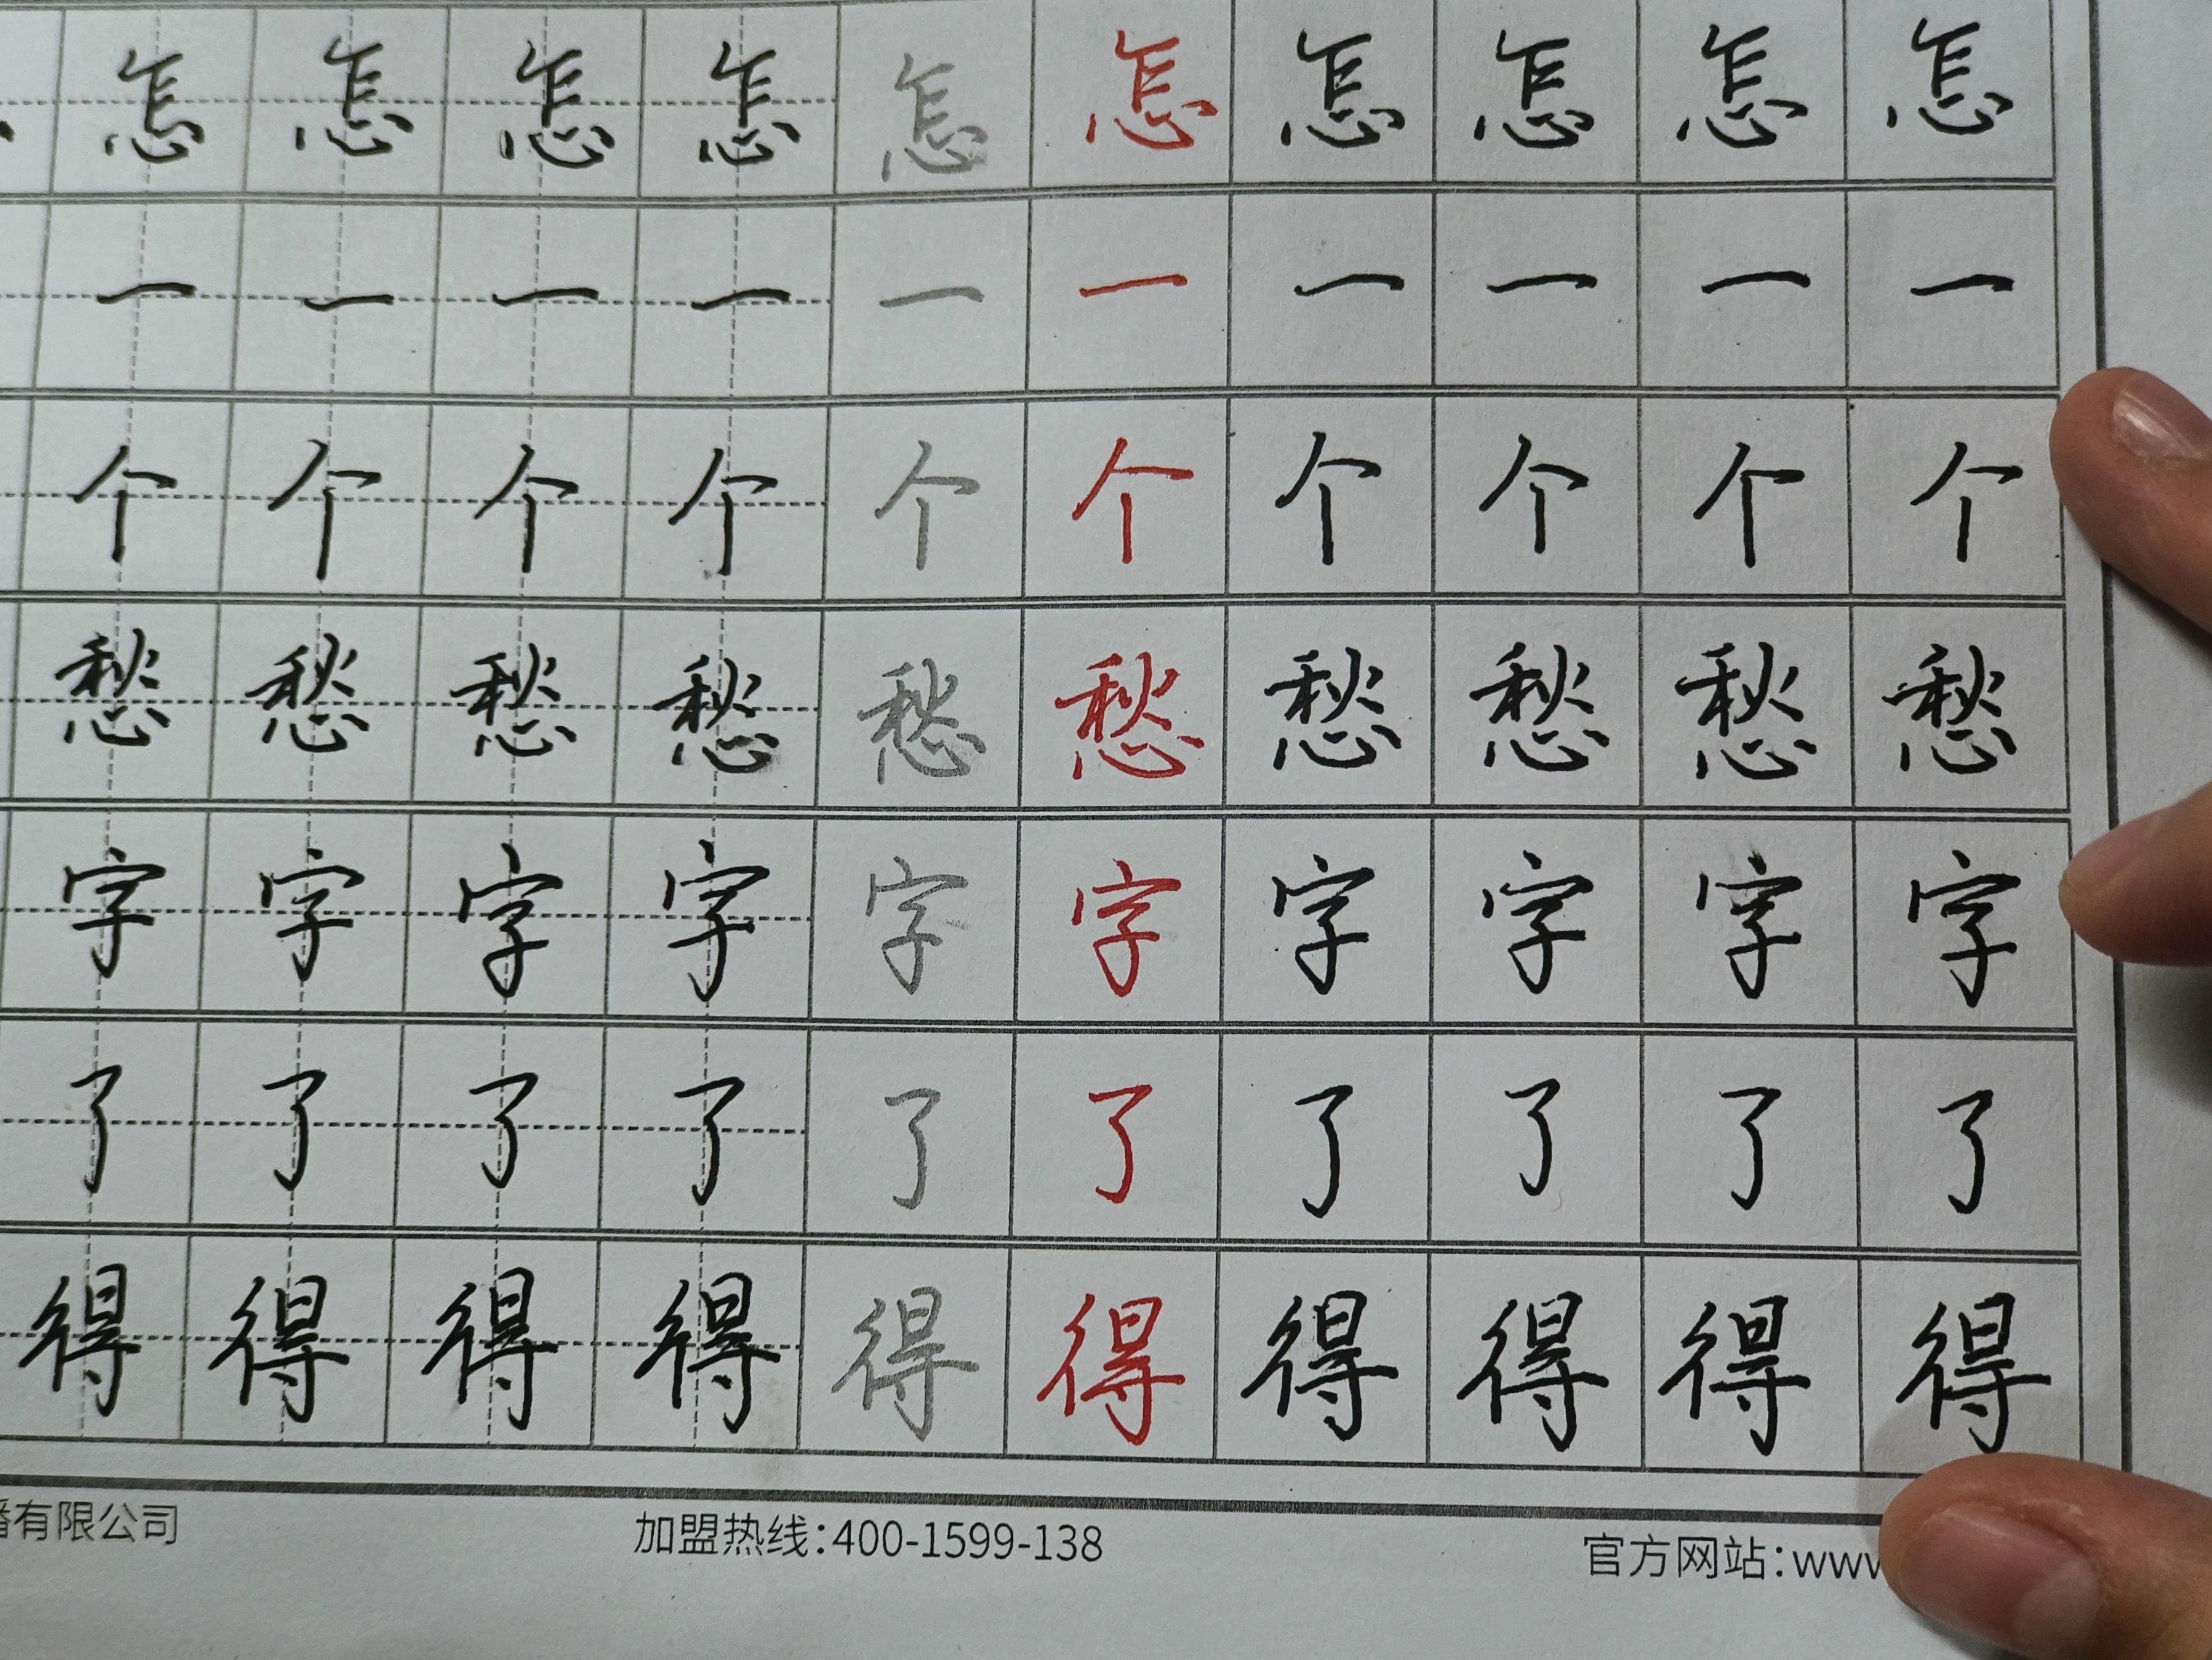 怎 怎 怎 怎 怎 怎 怎 怎 怎 怎
一 一 一 一 一 一 一 一 一 一
个 个 个 个 个 个 个 个 个 个
愁 愁 愁 愁 愁 愁 愁 愁 愁 愁
字 字 字 字 字 字 字 字 字 字
了 了 了 了 了 了 了 了 了 了
得 得 得 得 得 得 得 得 得 得
播有限公司 加盟热线：400-1599-138 官方网站：www